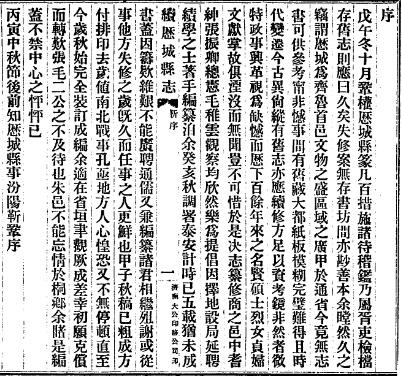 序
戊午冬十月鞏權歷城縣篆凡百措施諸待稽鑑乃屬胥吏檢檔
存舊志則應曰久矣失修案無存書坊間亦尠善本余瞠然久之
竊謂歷城爲齊魯首邑文物之盛區域之廣甲於通省今竟無志
書可供參甯非憾事間有舊藏大都紙板模糊完璧難得且時
代變遷今古異尙縱有舊志亦應續修方足以資考鏡非然者徵
特政事興革視爲缺憾而歷下百餘年來之名賢碩士烈女貞嫄
文獻掌故俱湮沒而無聞豈不可惜於是决志纂修商之邑中耆
紳張振卿總憲毛稚雲觀察均欣然樂爲提倡因擇地設局延聘
績學之士著手編纂泊余癸亥秋調署泰安計時已五載猶未成
續歷城縣志
新序
一
濟南大公印務公司印
書蓋因籌欵維艱不能廣聘通儒又兼編纂諸君相繼殂謝或從
事他方失修之歲旣久而任事之人更鮮也甲子秋稿已粗成方
付排印去歲値南北戰事孔亟地方人心惶恐又不無停頓直至
今歲秋始完全裝訂成編余適在省垣聿觀厥成差幸初願克償
而轉歎張毛二公之不及待也朱邑不能忘情於桐鄉余賭是編
蓋不禁中心之怦怦已
丙寅中秋節後前知歷城縣事汾陽靳鞏序